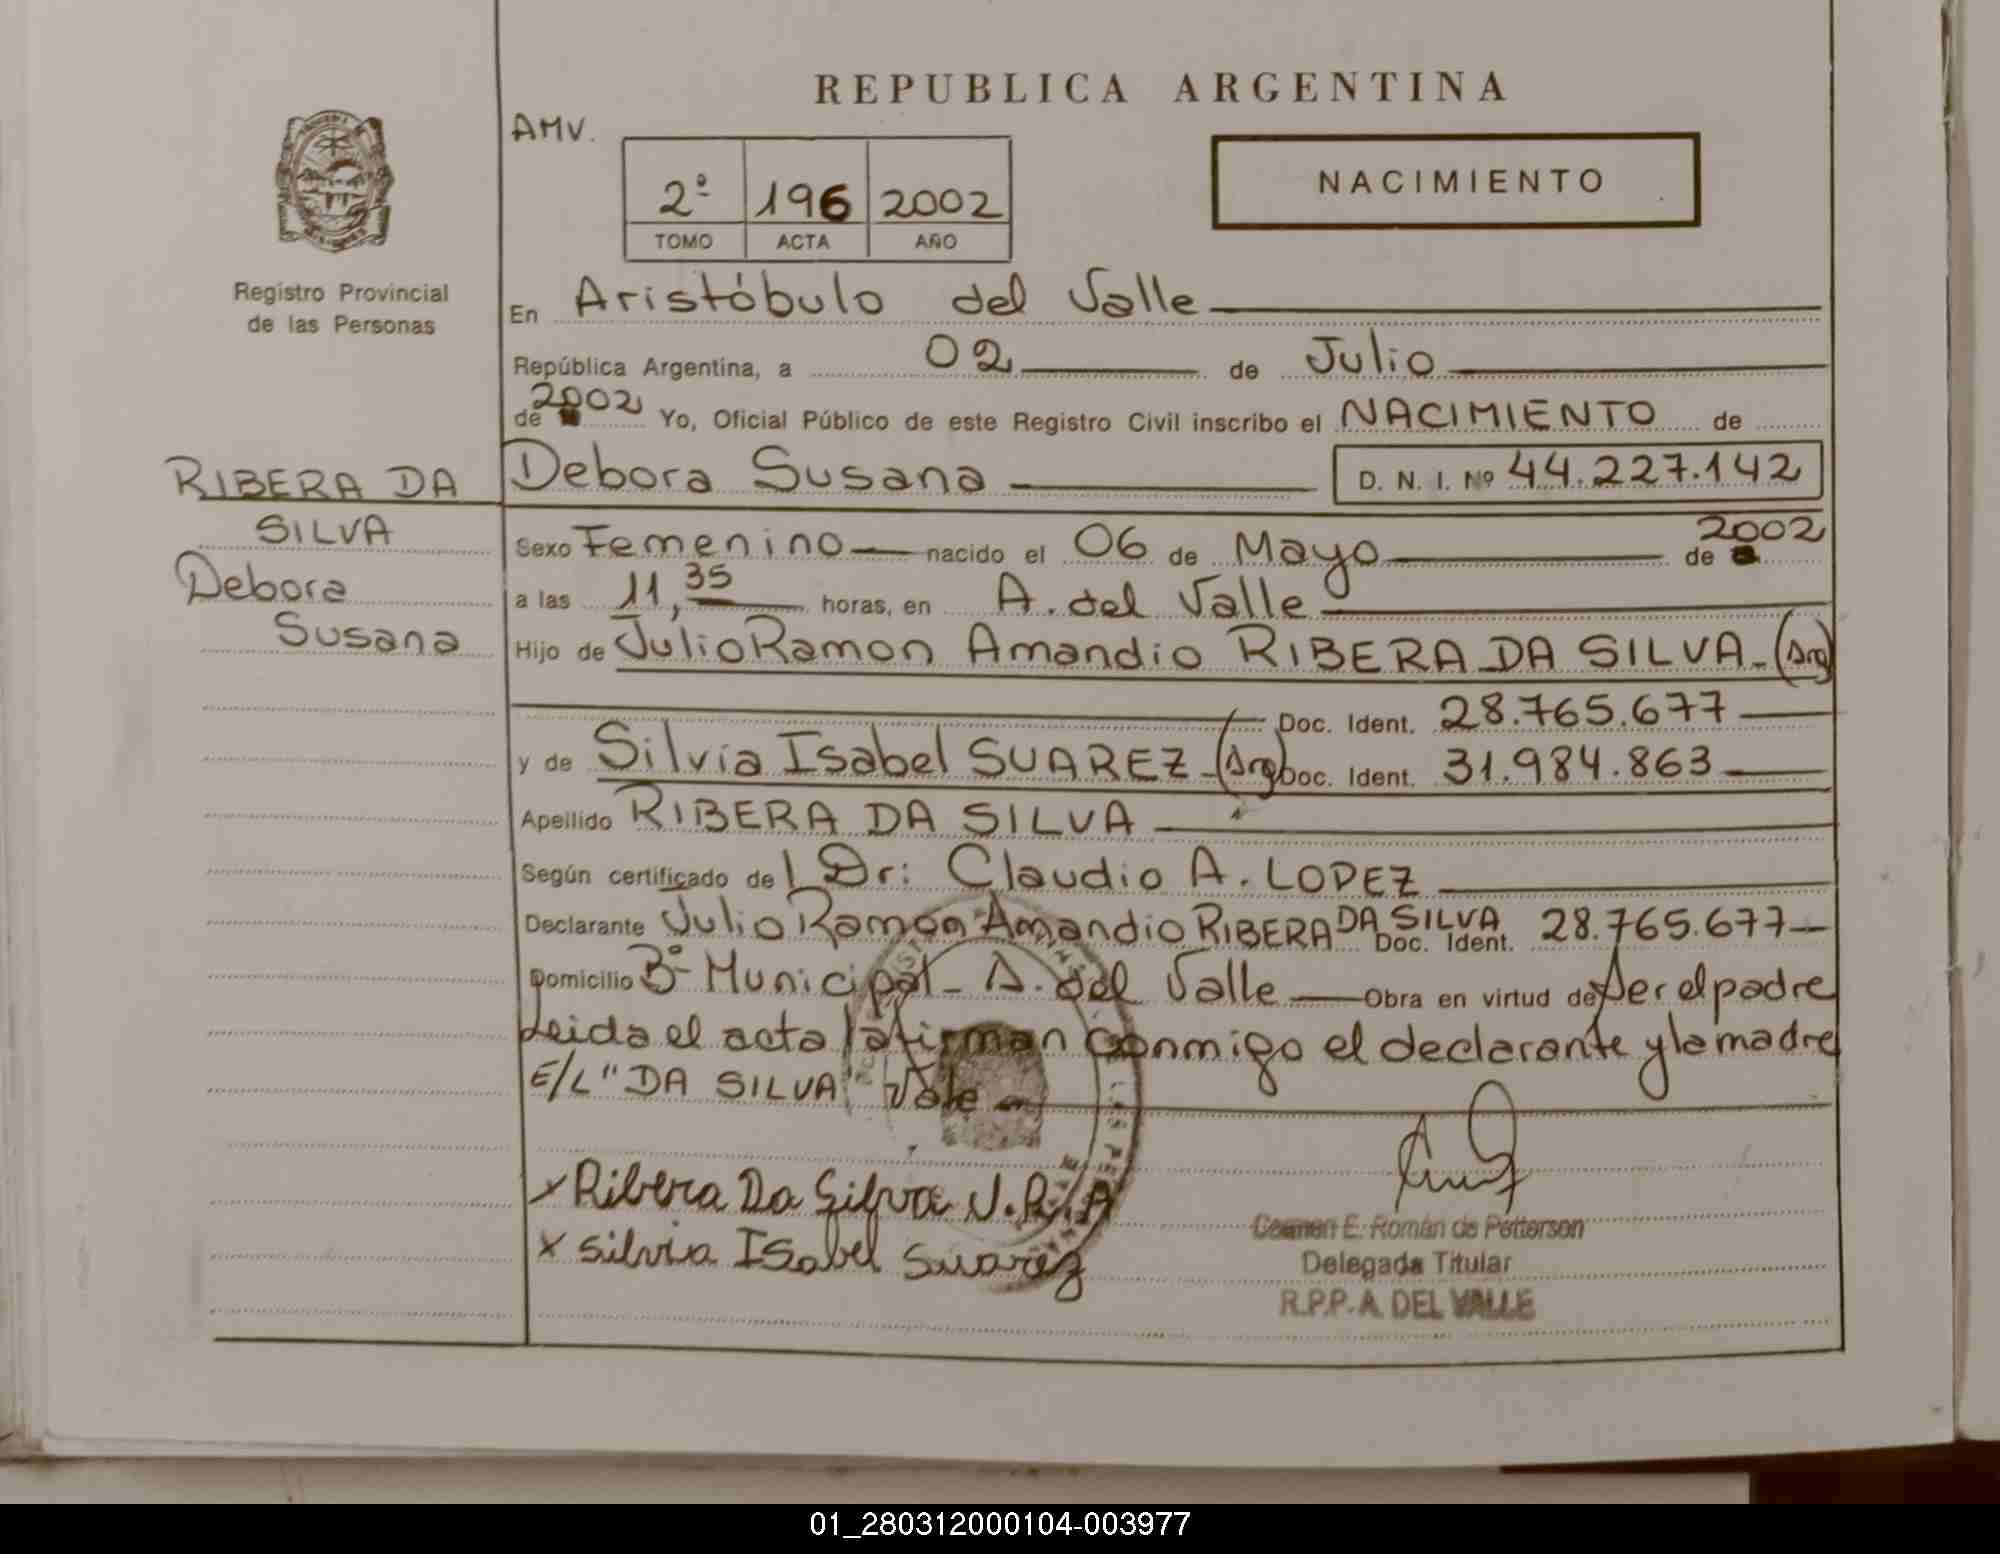 REPUBLICA ARGENTINA
AMV.
NACIMIENTO
2º 196 2002
TOMO ACTA AÑO
Registro Provincial
de las Personas
En Aristóbulo del Valle
República Argentina, a 02 de Julio
de 2002 Yo, Oficial Público de este Registro Civil inscribo el NACIMIENTO de
RIBERA DA
SILVA
Debora
Susana
Debora Susana D. N. I. Nº 44.227.142
Sexo Femenino nacido el 06 de Mayo de 2002
a las 11,35 horas, en A. del Valle
Hijo de Julio Ramon Amandio RIBERA DA SILVA - (Arg)
Doc. Ident. 28.765.677
y de Silvia Isabel SUAREZ - (Arg) Doc. Ident. 31.984.863
Apellido RIBERA DA SILVA
Según certificado del Dr: Claudio A. LOPEZ
Declarante Julio Ramon Amandio RIBERA DA SILVA Doc. Ident. 28.765.677
Domicilio Bº Municipal - A. del Valle Obra en virtud de Ser el padre
Leida el acta la firman conmigo el declarante y la madre
E/L "DA SILVA" Vale
x Ribera Da Silva J.R.A
x Silvia ISabel Suarez
Carmen E. Román de Petterson
Delegada Titular
R.P.P. A. DEL VALLE
01_280312000104-003977